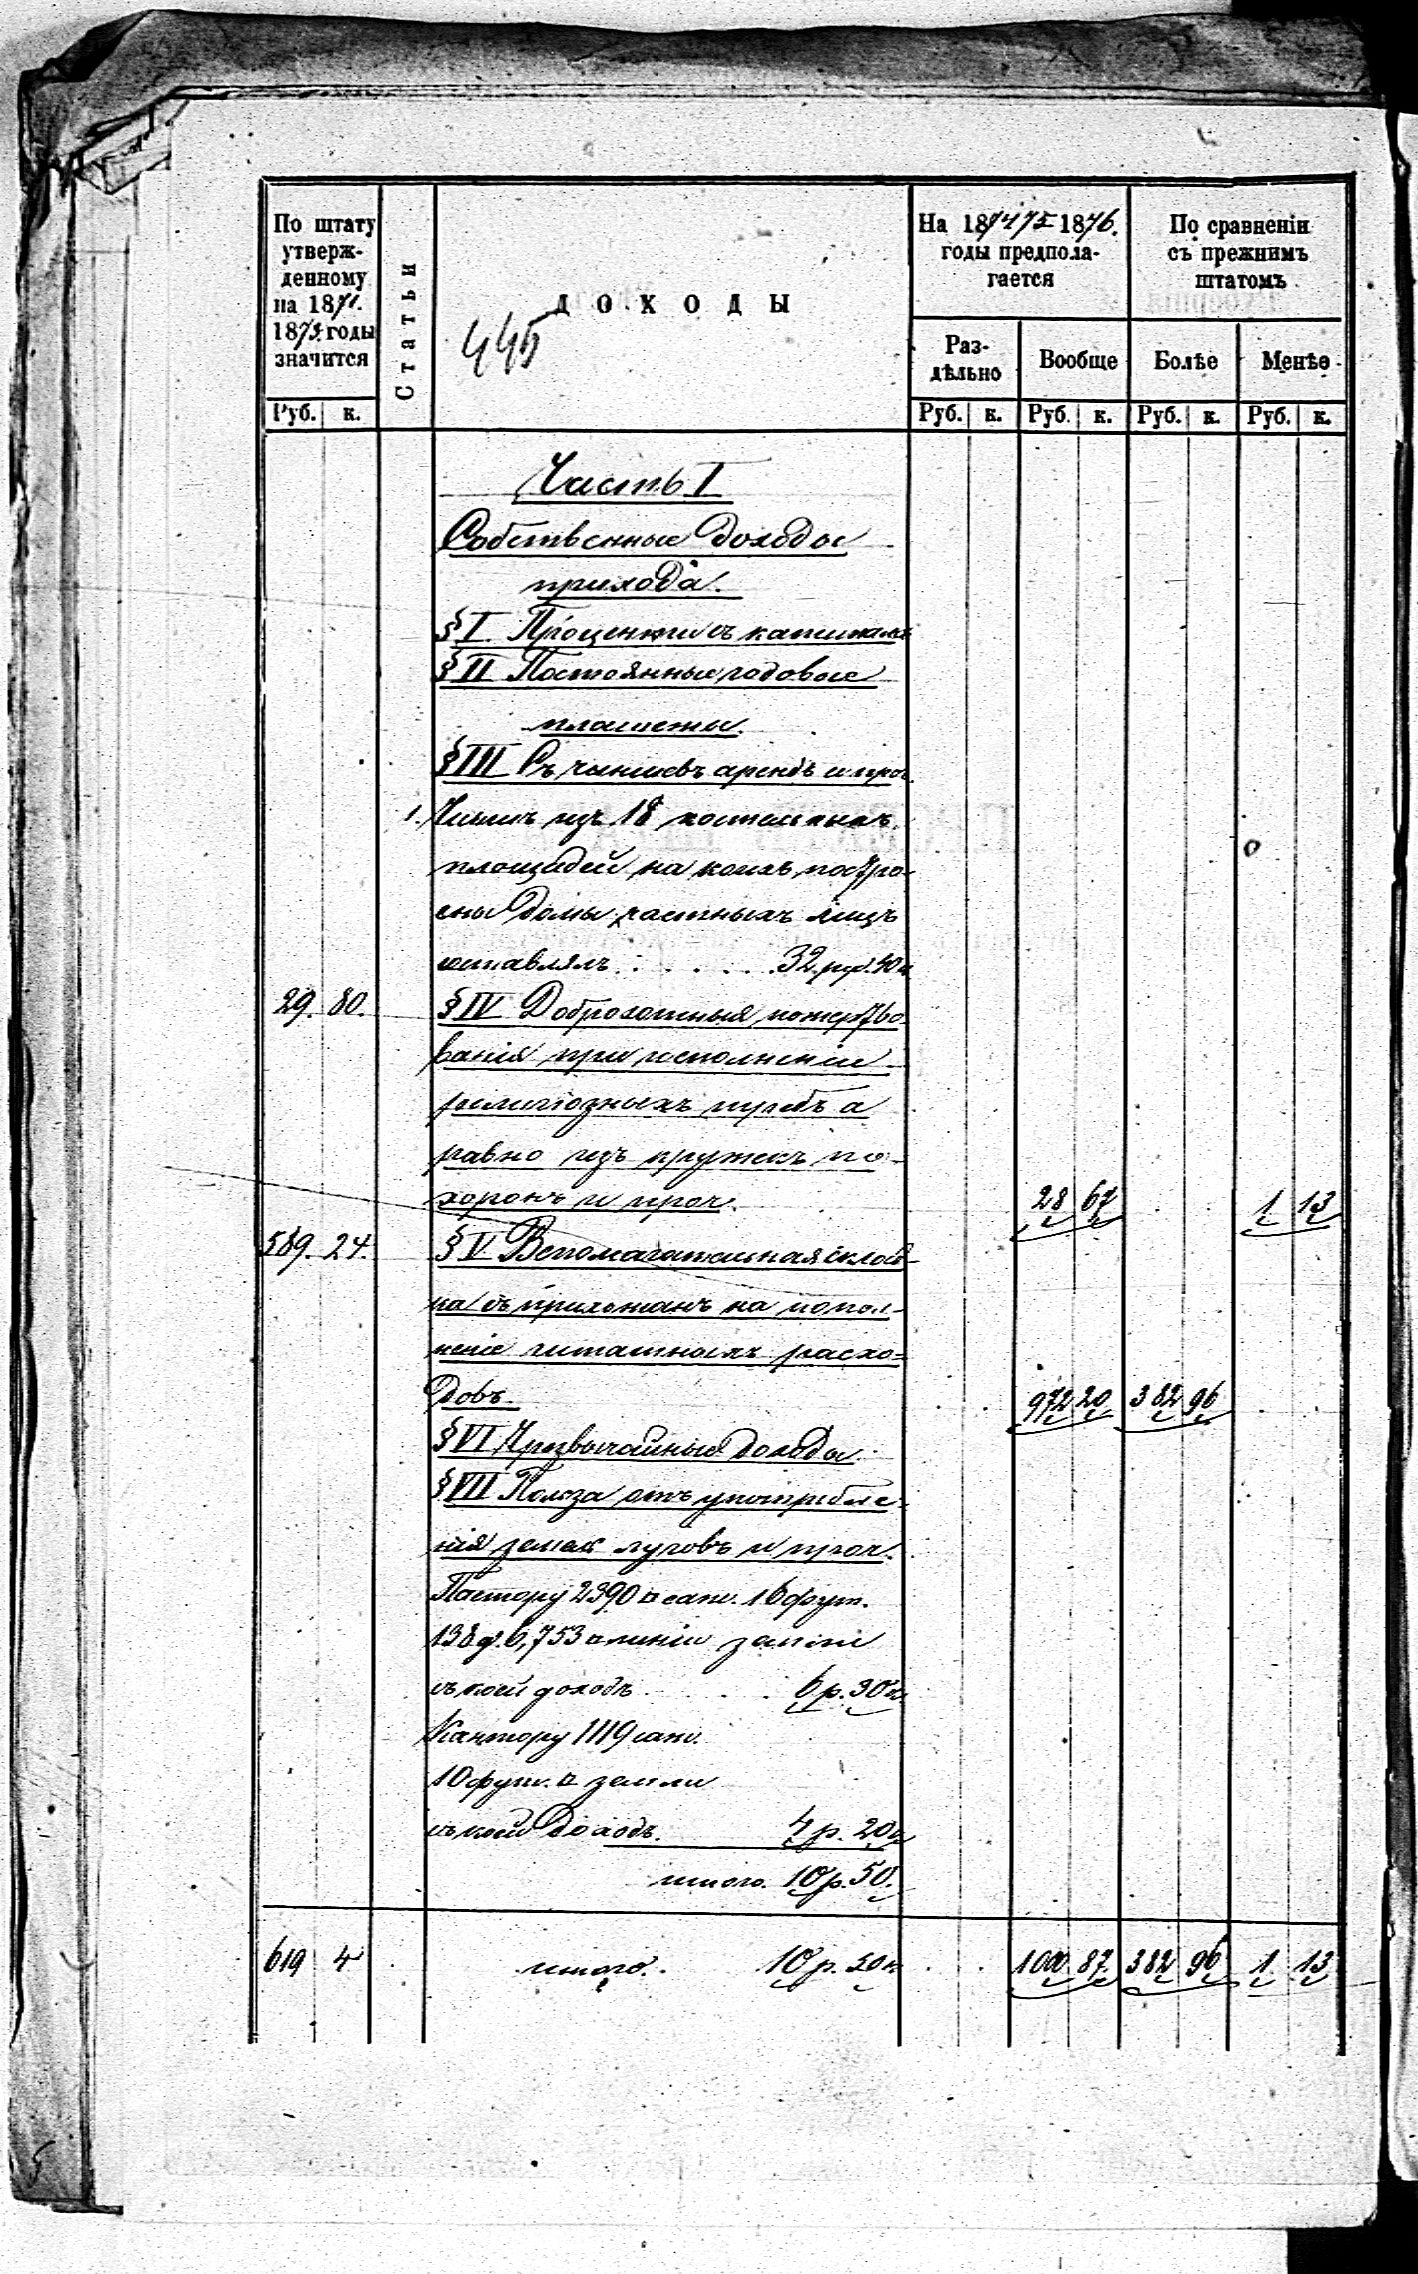 По штату
утверж-
денному
на 1871.
1873. годы
значится
Статьи
ДОХОДЫ
445
На 1874 75 1876.
годы предпола-
гается
По сравненіи
съ прежнимъ
штатомъ
Раз-
дѣльно
Вообще
Болѣе
Менѣе
Руб. к. Руб. к. Руб. к. Руб. к. Руб. к.
Часть I
Собственные доходы
прихода.
§ I Проценты съ капиталъ
§ II Постоянные годовые
платежи.
§ III Съ чыншевъ арендъ и проч.
1. Чыншъ изъ 18
площадей на коихъ построе
ены домы частныхъ лицъ
32 руб. 40 к
29. 80. § IV Доброхотныя пожертво-
ванія при исполненіи
религіозныхъ требъ а
равно изъ кружекъ по-
хоронъ и проч. 28 67 1 13
589. 24. § V Вспомагательная склад-
ка съ прихожанъ на попол-
неніе штатныхъ расхо-
довъ. 972 20 382 96
§ VI Чрезвычайные доходы.
§ VII Польза отъ употребле-
нія земель луговъ и проч.
Пастору 2390 □ саж. 16 фут.
138 д. 6,753 □ линіи земли
съ коей доходъ 6 р. 30 к.
Кантору 1119 саж.
10 фут. □ земли
съ коей доходъ. 4 р. 20 к
итого. 10 р. 50.
619 4 итого. 10 р. 50 к 1000 87 382 96 1 13